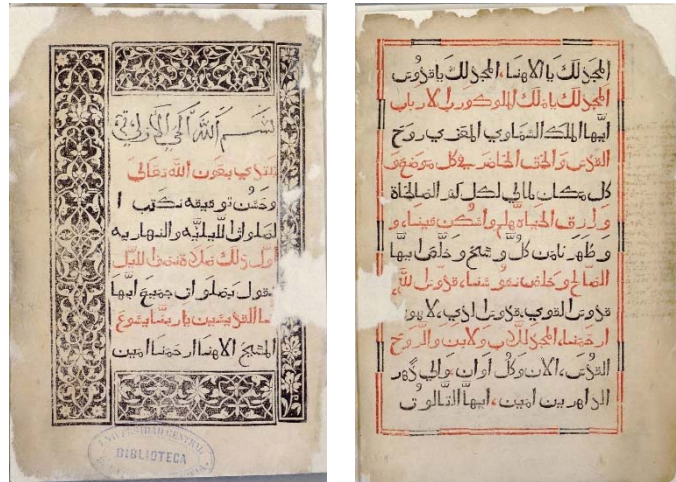 بسم الله الحي الازلي
نبتدي بعون الله تعالى
وحسن توفيقه نكتب ا
لصلوات الليليه والنهاريه
واول ذلك صلاة نصف الليل
نقول بصلوات جميع ابها
القديسين يا ربنا يشوع
المسيح الاهنا ارحمنا امين
UNIVERSIDAD CENTRAL
BIBLIOTECA
المجد لك يا الاهنا، المجد لك يا قدوس
المجد لك يا ملك الملوك ورب الارباب
ايها الملك السماوي المعزي روح
القدس والحق الحاضر في كل موضع و
كل مكان لمالي لكل كنز الصالحاة
ورازق الحياه هلم واسكن فينا، و
وطهرنا من كل وسخ وخلص ايها
الصالح وخلص نفوسنا، قدوس لله
قدوس القوي، قدوس الذي، لا يمو
ارحمنا، المجد للاب ولابن والروح
القدس، الان وكل اوان، والي دهر
الداهرين امين، ايها الثالوث